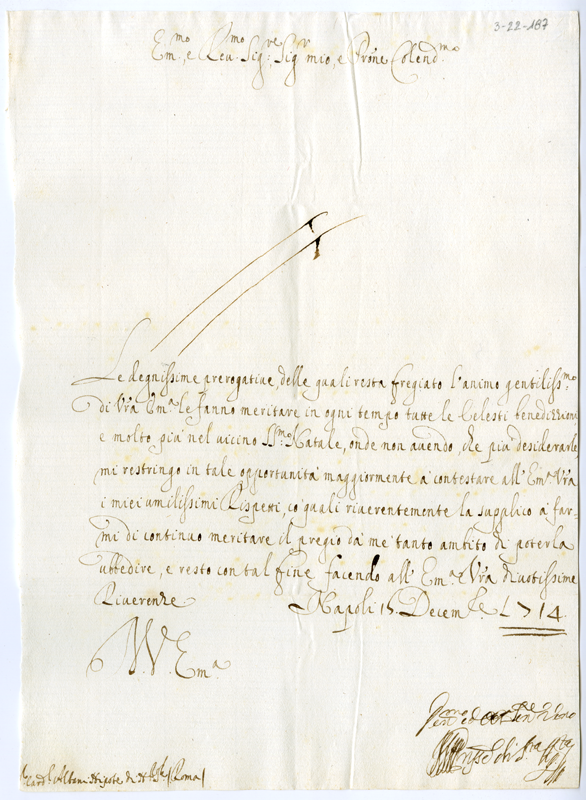 3-22-187
Em.mo, e Reu.mo Sig.re, Sig.r mio, e Prōne Colend.mo
Le degnissime prerogatiue, delle quali resta fregiato l'animo gentiliss.mo
di Vrā Em.a le fanno meritare in ogni tempo tutte le Celesti benedizzioni
e molto più nel uicino SS.mo Natale, onde non auendo, che più desiderarle
mi restringo in tale opportunità maggiormente a contestare all'Em.a Vrā
i miei umilissimi Rispetti, co' quali riuerentemente la supplico a far-
mi di continuo meritare il pregio da me tanto ambito di poterla
ubbedire, e resto con tal fine facendo all'Em.a Vrā deuotissime
Riuerenze Napoli 15 Decem.re 1714.
V. Em.a
Card.l Albani Nipote di (Roma)